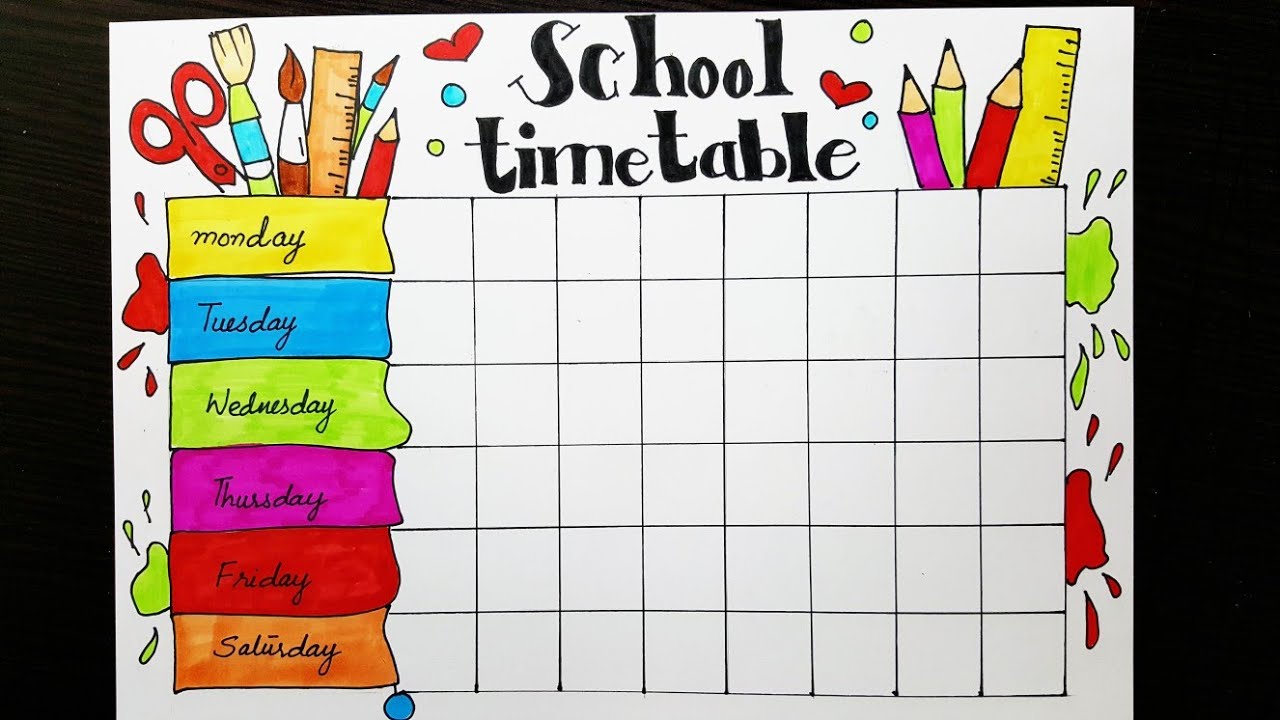 School
timetable
monday
Tuesday
Wednesday
Thursday
Friday
Saturday